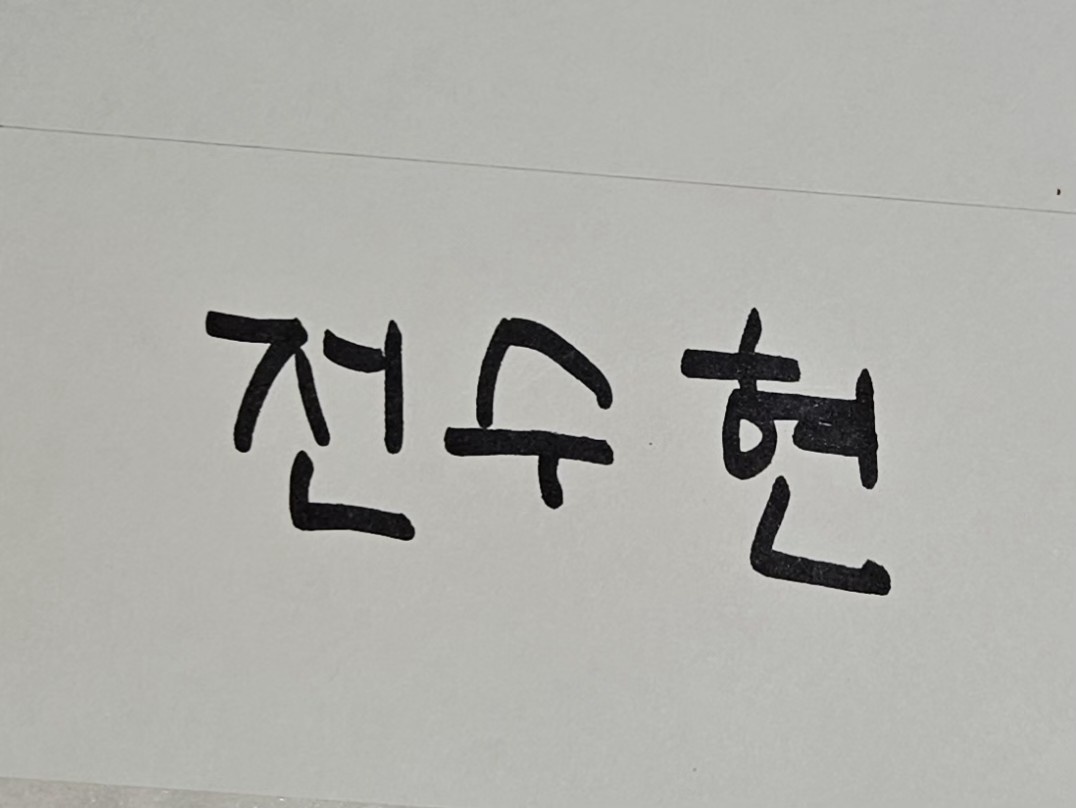 전수현